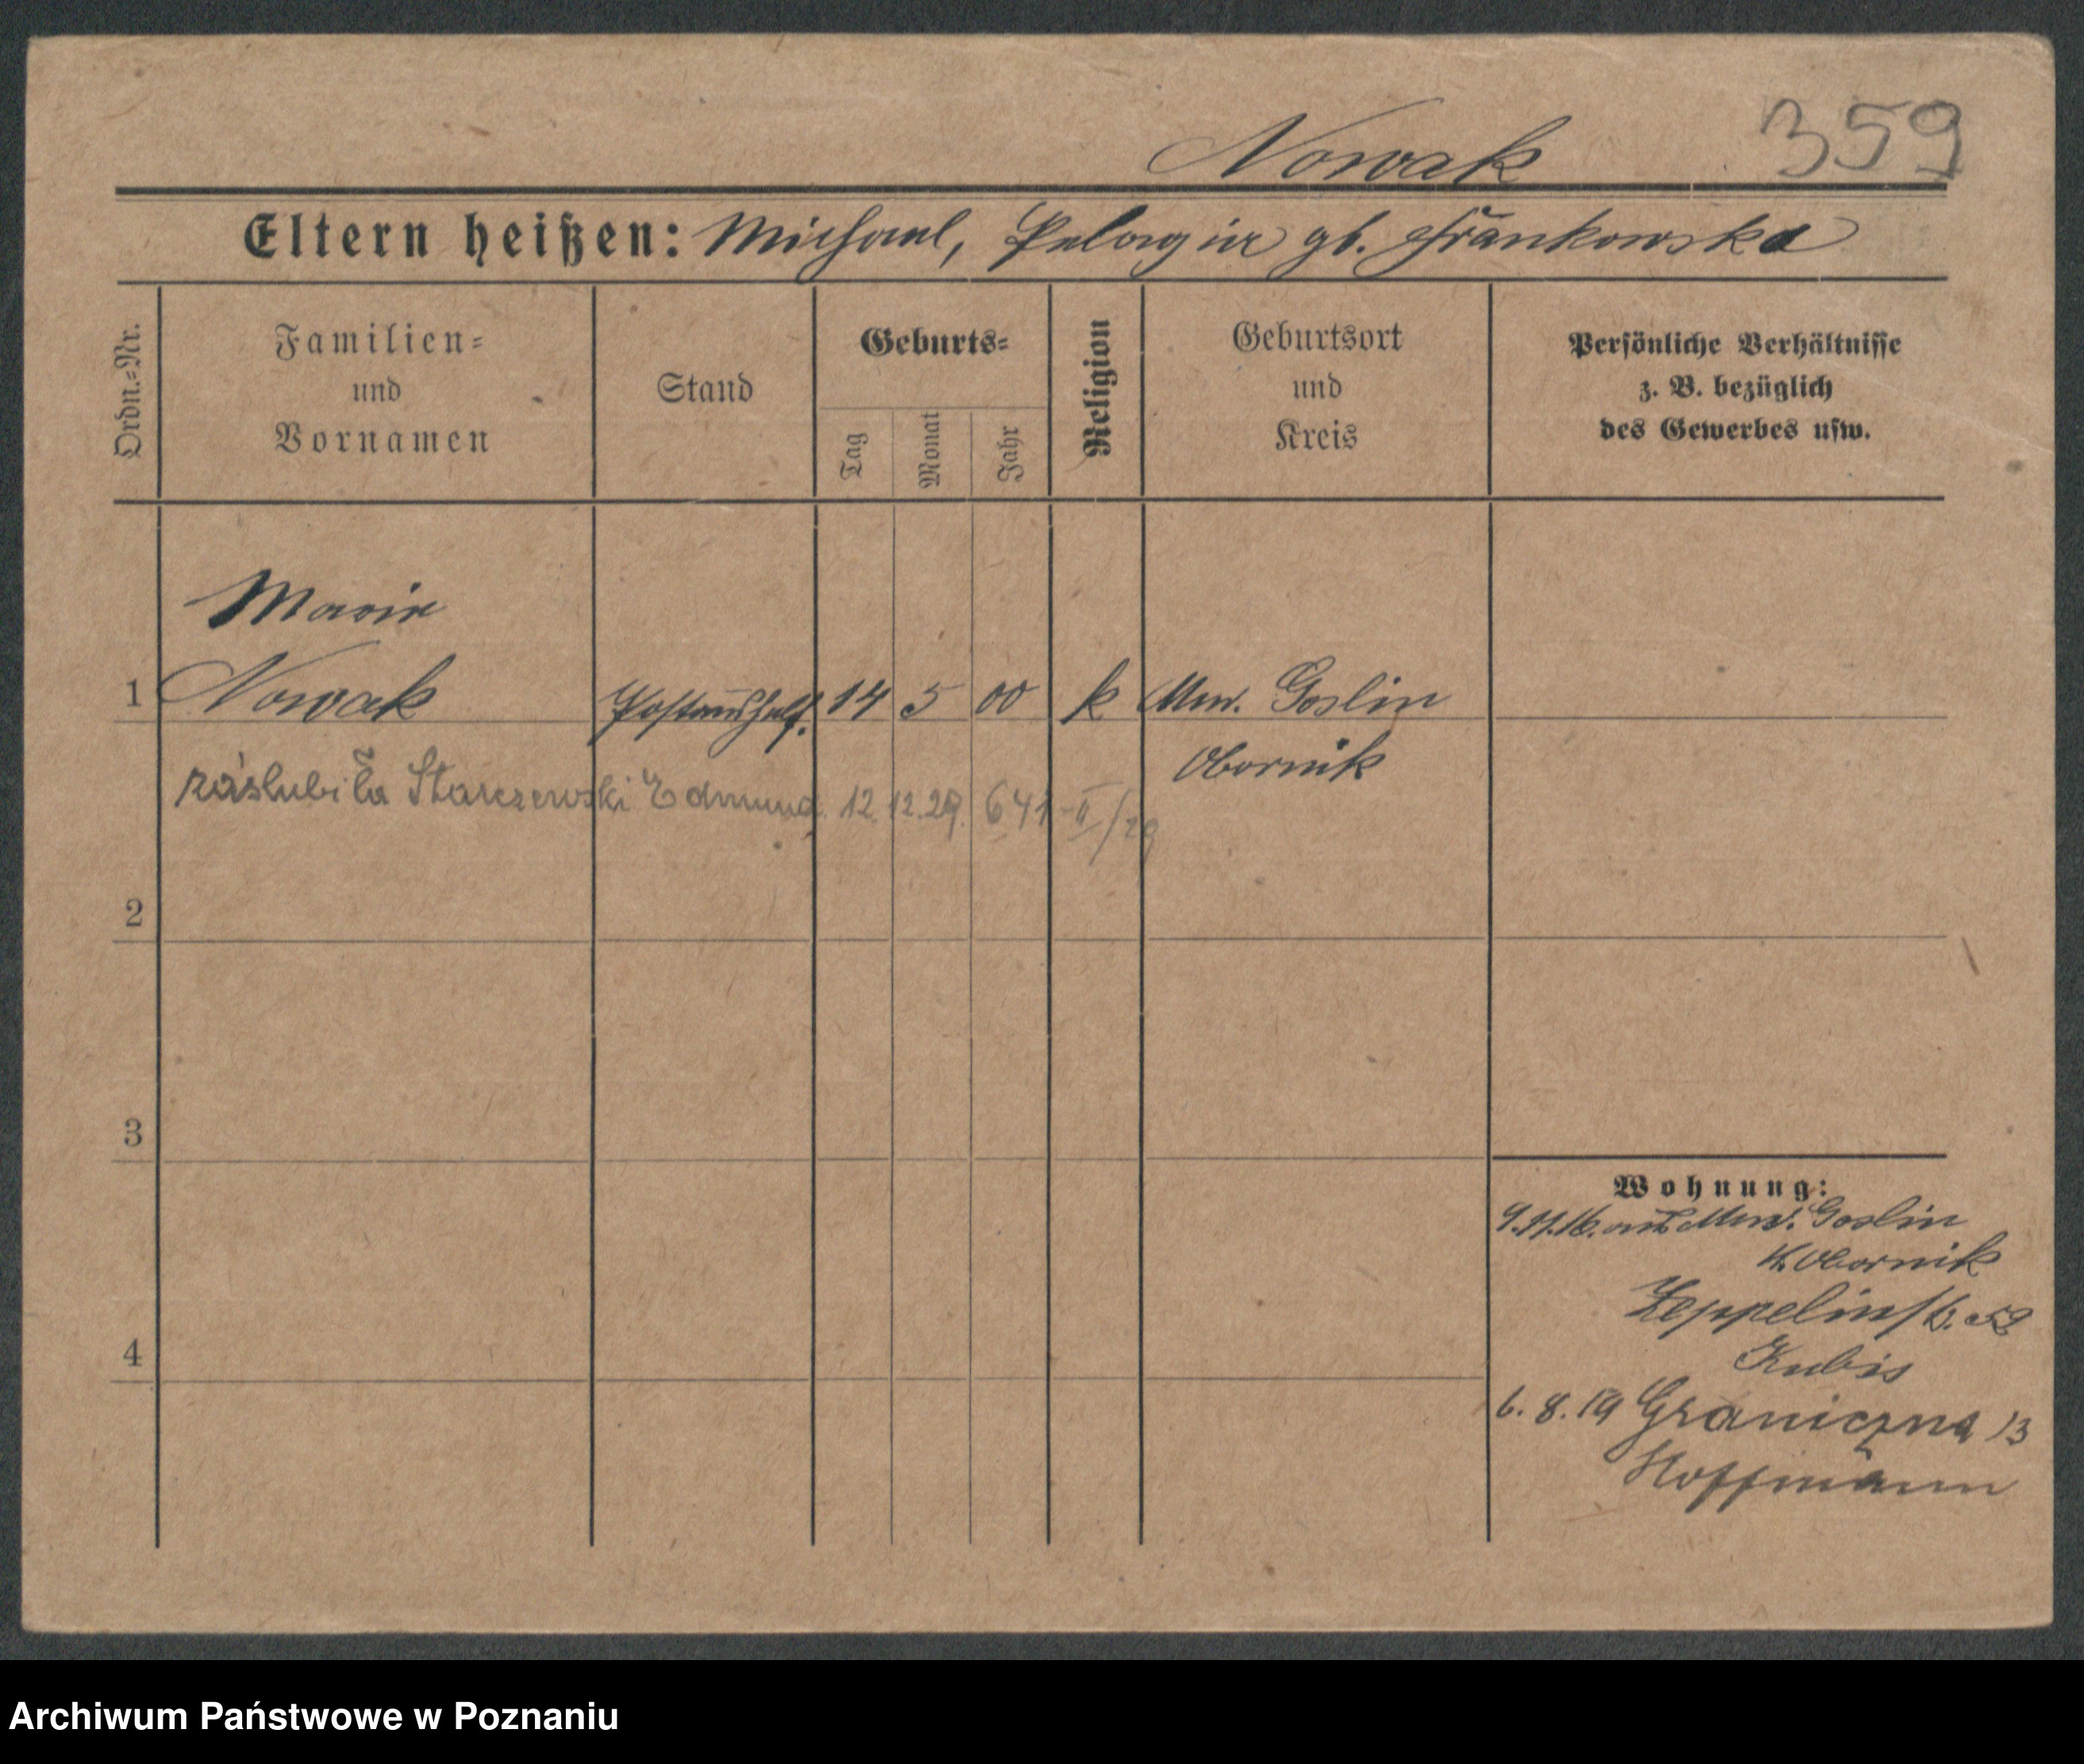 Nowak 359
Eltern heißen: Michael, Pelagia gb. Frankowska
Ordn.=Nr.
Familien=
und
Vornamen
Stand
Geburts=
Tag
Monat
Jahr
Religion
Geburtsort
und
Kreis
Persönliche Verhältnisse
z. B. bezüglich
des Gewerbes usw.
Marie
1 Nowak Postaushelf. 14 5 00 k Mur. Goslin
Obornik
zaślubiła Starczewski Edmund. 12.12.29. 641-II/29
2
3
4
Wohnung:
9.11.16. aus Mur. Goslin
K. Obornik
Zeppelinstr.
Kubis
6. 8. 19 Graniczna 13
Hoffmann
Archiwum Państwowe w Poznaniu